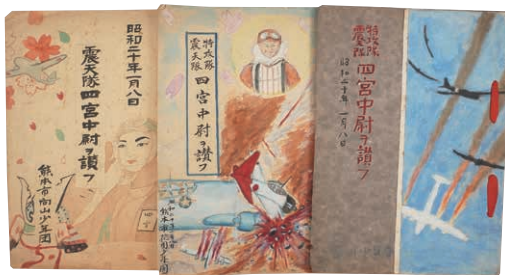 昭和二十年一月八日
震天隊四宮中尉ヲ讃フ
熊本市向山少年団
特攻隊
震天隊
四宮中尉ヲ讃フ
特攻隊
震天隊
四宮中尉ヲ讃フ
昭和二十年 一月八日